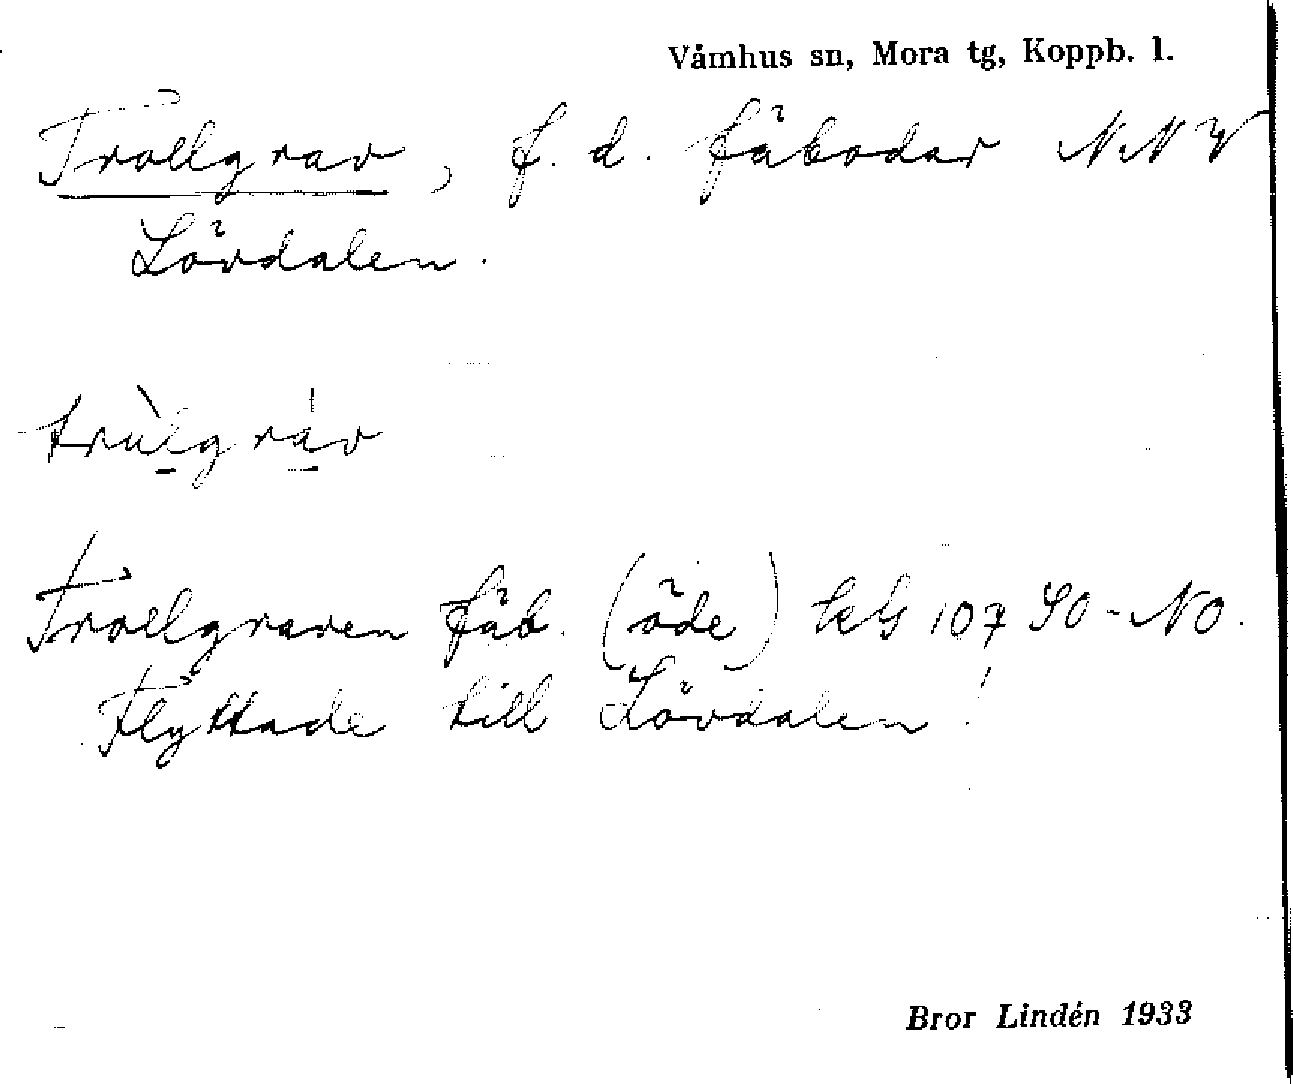 Våmhus sn, Mora tg, Koppb. l.
Trollgrav, f. d. fäbodar NNV
Lövdalen.
trùlgràv
Trollgraven fäb. (öde) kbl 107 SO-NO.
Flyttade till Lövdalen!
Bror Lindén 1933